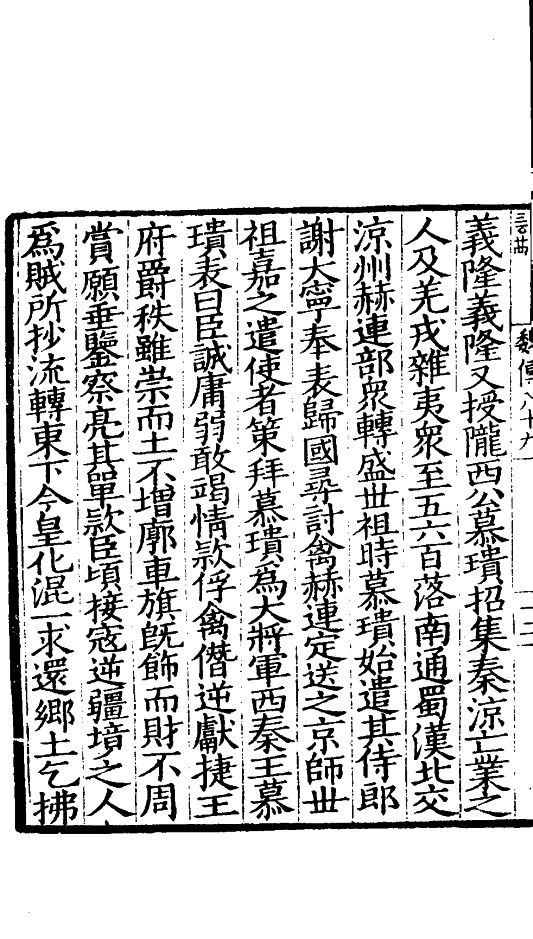 魏傳八十九
義隆義隆又授隴西公慕璝招集秦涼亡業之
人及羌戎雜夷衆至五六百落南通蜀漢北交
涼州赫連部衆轉盛世祖時慕璝始遣其侍郎
謝大寧奉表歸國尋討禽赫連定送之京師世
祖嘉之遣使者策拜慕璝爲大將軍西秦王慕
璝表曰臣誠庸弱敢竭情款俘禽僭逆獻捷王
府爵秩雖崇而土不增廓車旗旣飾而財不周
賞願垂鑒察亮其單款臣頃接寇逆疆墳之人
爲賊所抄流轉東下今皇化混一求還鄉土乞拂